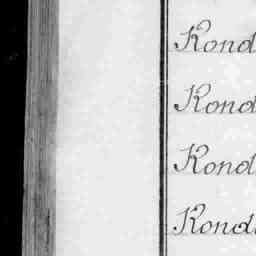 Kond
Kond
Kond
Kond